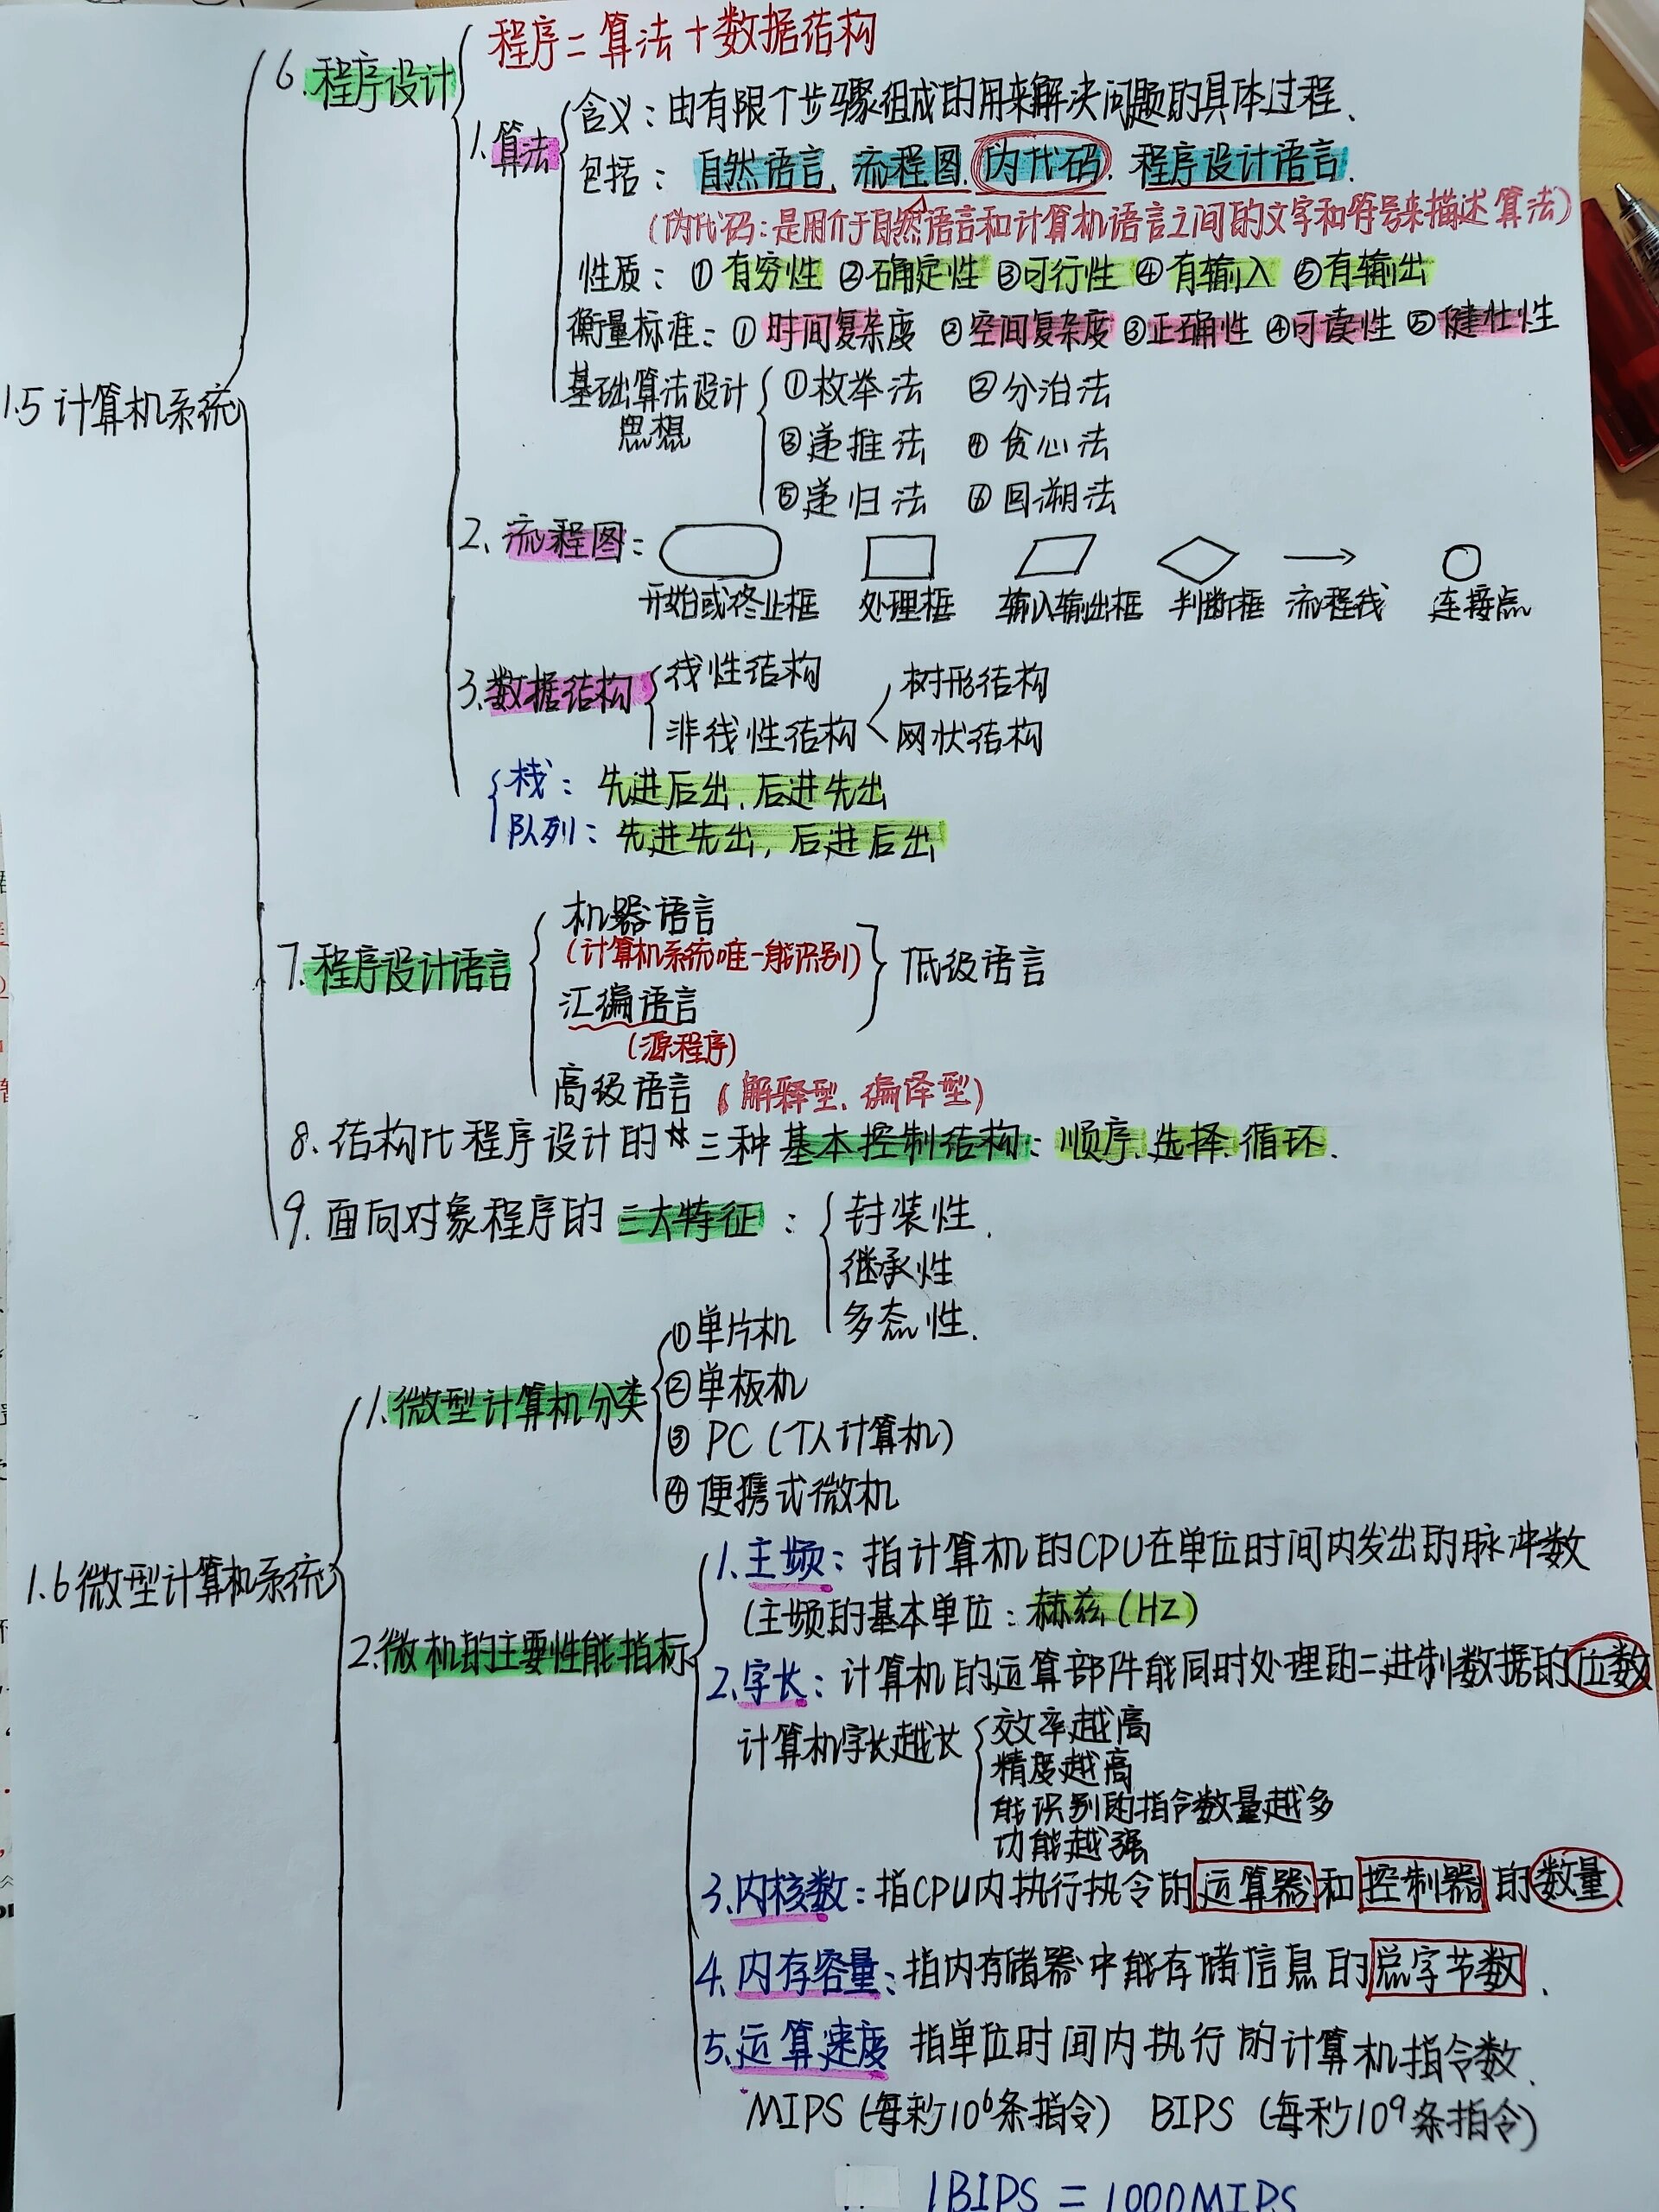 1.5 计算机系统
6.程序设计
程序=算法+数据结构
1.算法
含义:由有限个步骤组成的用来解决问题的具体过程.
包括: 自然语言、流程图、伪代码、程序设计语言.
(伪代码:是用介于自然语言和计算机语言之间的文字和符号来描述算法)
性质: ①有穷性 ②确定性 ③可行性 ④有输入 ⑤有输出
衡量标准: ①时间复杂度 ②空间复杂度 ③正确性 ④可读性 ⑤健壮性
基础算法设计
思想
①枚举法 ②分治法
③递推法 ④贪心法
⑤递归法 ⑥回溯法
2、流程图:
开始或终止框 处理框 输入输出框 判断框 流程线 连接点
3.数据结构
线性结构
非线性结构
树形结构
网状结构
栈: 先进后出、后进先出
队列: 先进先出, 后进后出
7.程序设计语言
机器语言
(计算机系统唯一能识别)
汇编语言
(源程序)
低级语言
高级语言 (解释型、编译型)
8.结构化程序设计的三种基本控制结构: 顺序、选择、循环.
9.面向对象程序的三大特征:
封装性.
继承性
多态性.
1.6微型计算机系统
1.微型计算机分类
①单片机
②单板机
③PC(个人计算机)
④便携式微机
2.微机的主要性能指标
1.主频: 指计算机的CPU在单位时间内发出的脉冲数
(主频的基本单位: 赫兹(HZ)
2、字长: 计算机的运算部件能同时处理的二进制数据的位数
计算机字长越长
效率越高
精度越高
能识别的指令数量越多
功能越强
3.内核数: 指CPU内执行执令的运算器和控制器的数量.
4.内存容量: 指内存储器中能存储信息的总字节数.
5.运算速度 指单位时间内执行的计算机指令数.
MIPS(每秒10⁶条指令) BIPS(每秒10⁹条指令)
1BIPS=1000MIPS